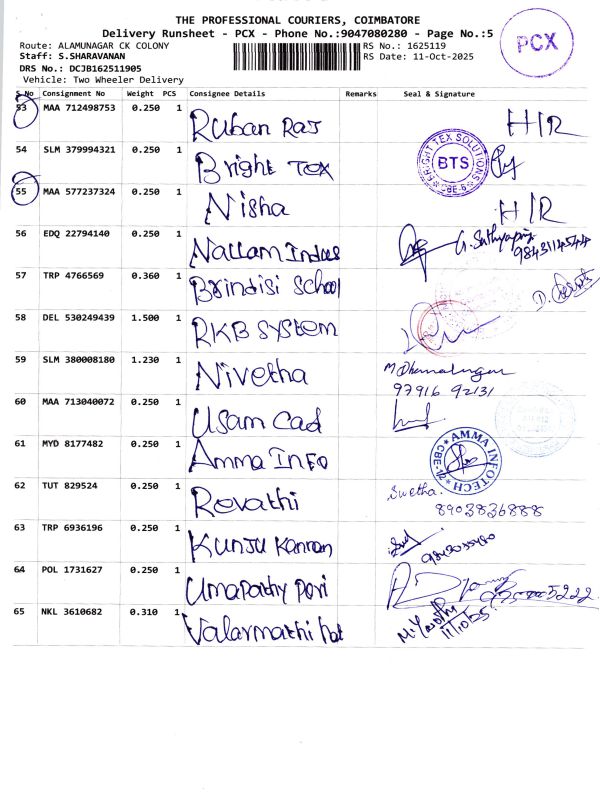 THE PROFESSIONAL COURIERS, COIMBATORE
Delivery Runsheet - PCX - Phone No.:9047080280 - Page No.:5
Route: ALAMUNAGAR CK COLONY
RS No.: 1625119
Staff: S.SHARAVANAN
RS Date: 11-Oct-2025
DRS No.: DCJB162511905
Vehicle: Two Wheeler Delivery
PCX
S No Consignment No Weight PCS Consignee Details Remarks Seal & Signature
53 MAA 712498753 0.250 1 Ruban Raj H/R
54 SLM 379994321 0.250 1 Bright Tex
BRIGHT TEX SOLUTIONS BTS CBE-6
55 MAA 577237324 0.250 1 Nisha H/R
56 EDQ 22794140 0.250 1 Nallam Indus
57 TRP 4766569 0.360 1 Brindisi School
58 DEL 530249439 1.500 1 RKB System
59 SLM 380008180 1.230 1 Nivetha
97916 92131
60 MAA 713040072 0.250 1 Usam Cad
61 MYD 8177482 0.250 1 Amma Info
AMMA INFOTECH CBE-12
62 TUT 829524 0.250 1 Revathi Swetha.
8903836888
63 TRP 6936196 0.250 1 Kunju Kannan
64 POL 1731627 0.250 1 Umapathy
65 NKL 3610682 0.310 1 Valarmathi
11/10/25